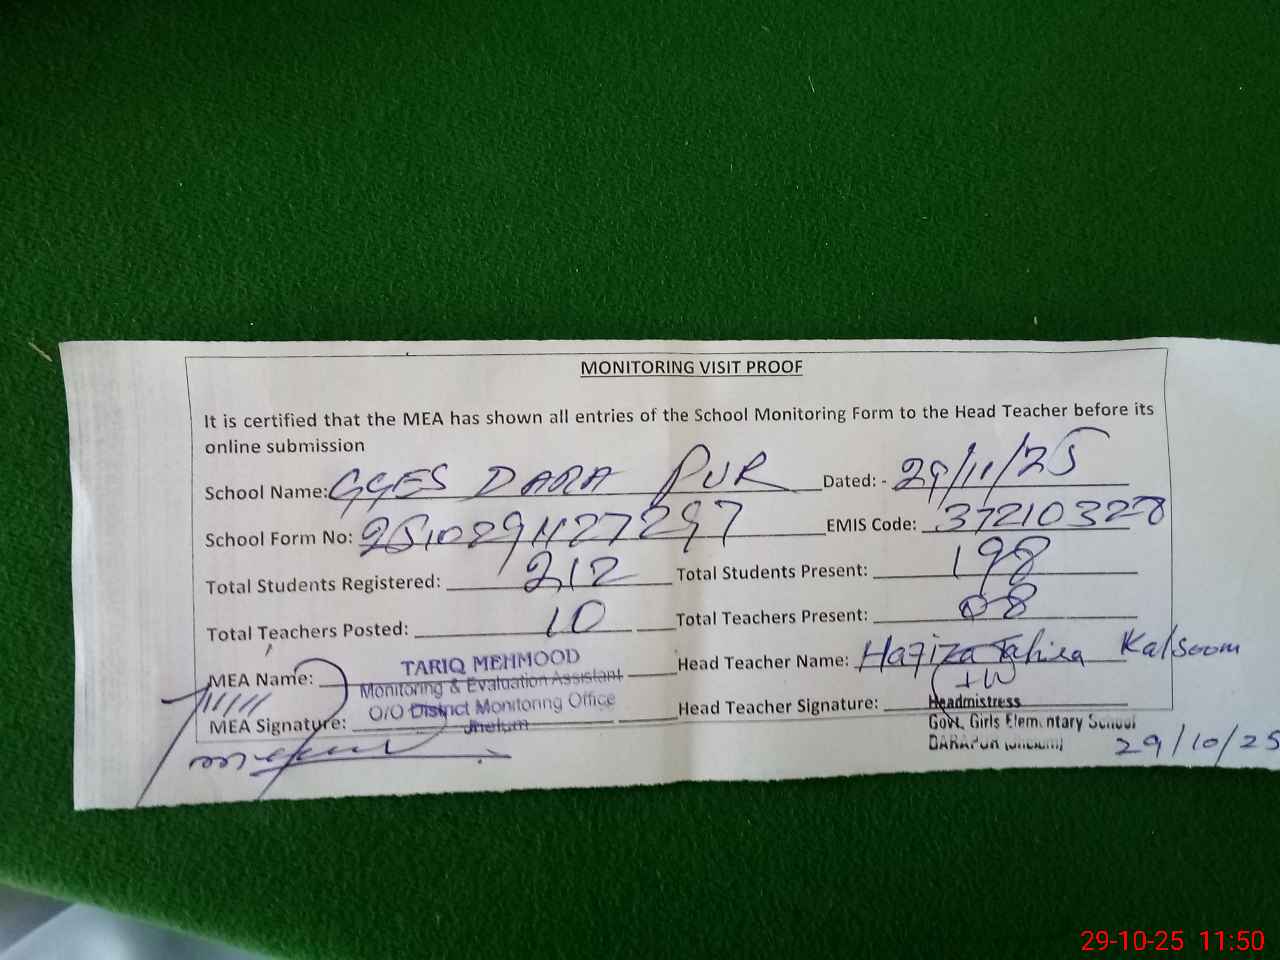 MONITORING VISIT PROOF
It is certified that the MEA has shown all entries of the School Monitoring Form to the Head Teacher before its
online submission
School Name: GGES DARA PUR Dated: - 29/11/25
School Form No: 2510291127297 EMIS Code: 37210328
Total Students Registered: 212 Total Students Present: 198
Total Teachers Posted: 10 Total Teachers Present: 08
MEA Name: TARIQ MEHMOOD Head Teacher Name: Hafiza Tahira Kalsoom
Monitoring & Evaluation Assistant
O/O District Monitoring Office
Jhelum
MEA Signature: Head Teacher Signature:
Headmistress
Govt. Girls Elementary School
DARAPUR (Jhelum)
29/10/25
29-10-25 11:50